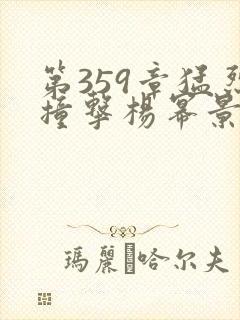 第359章猛烈
撞擊楊冪景
瑪麗·哈尔夫